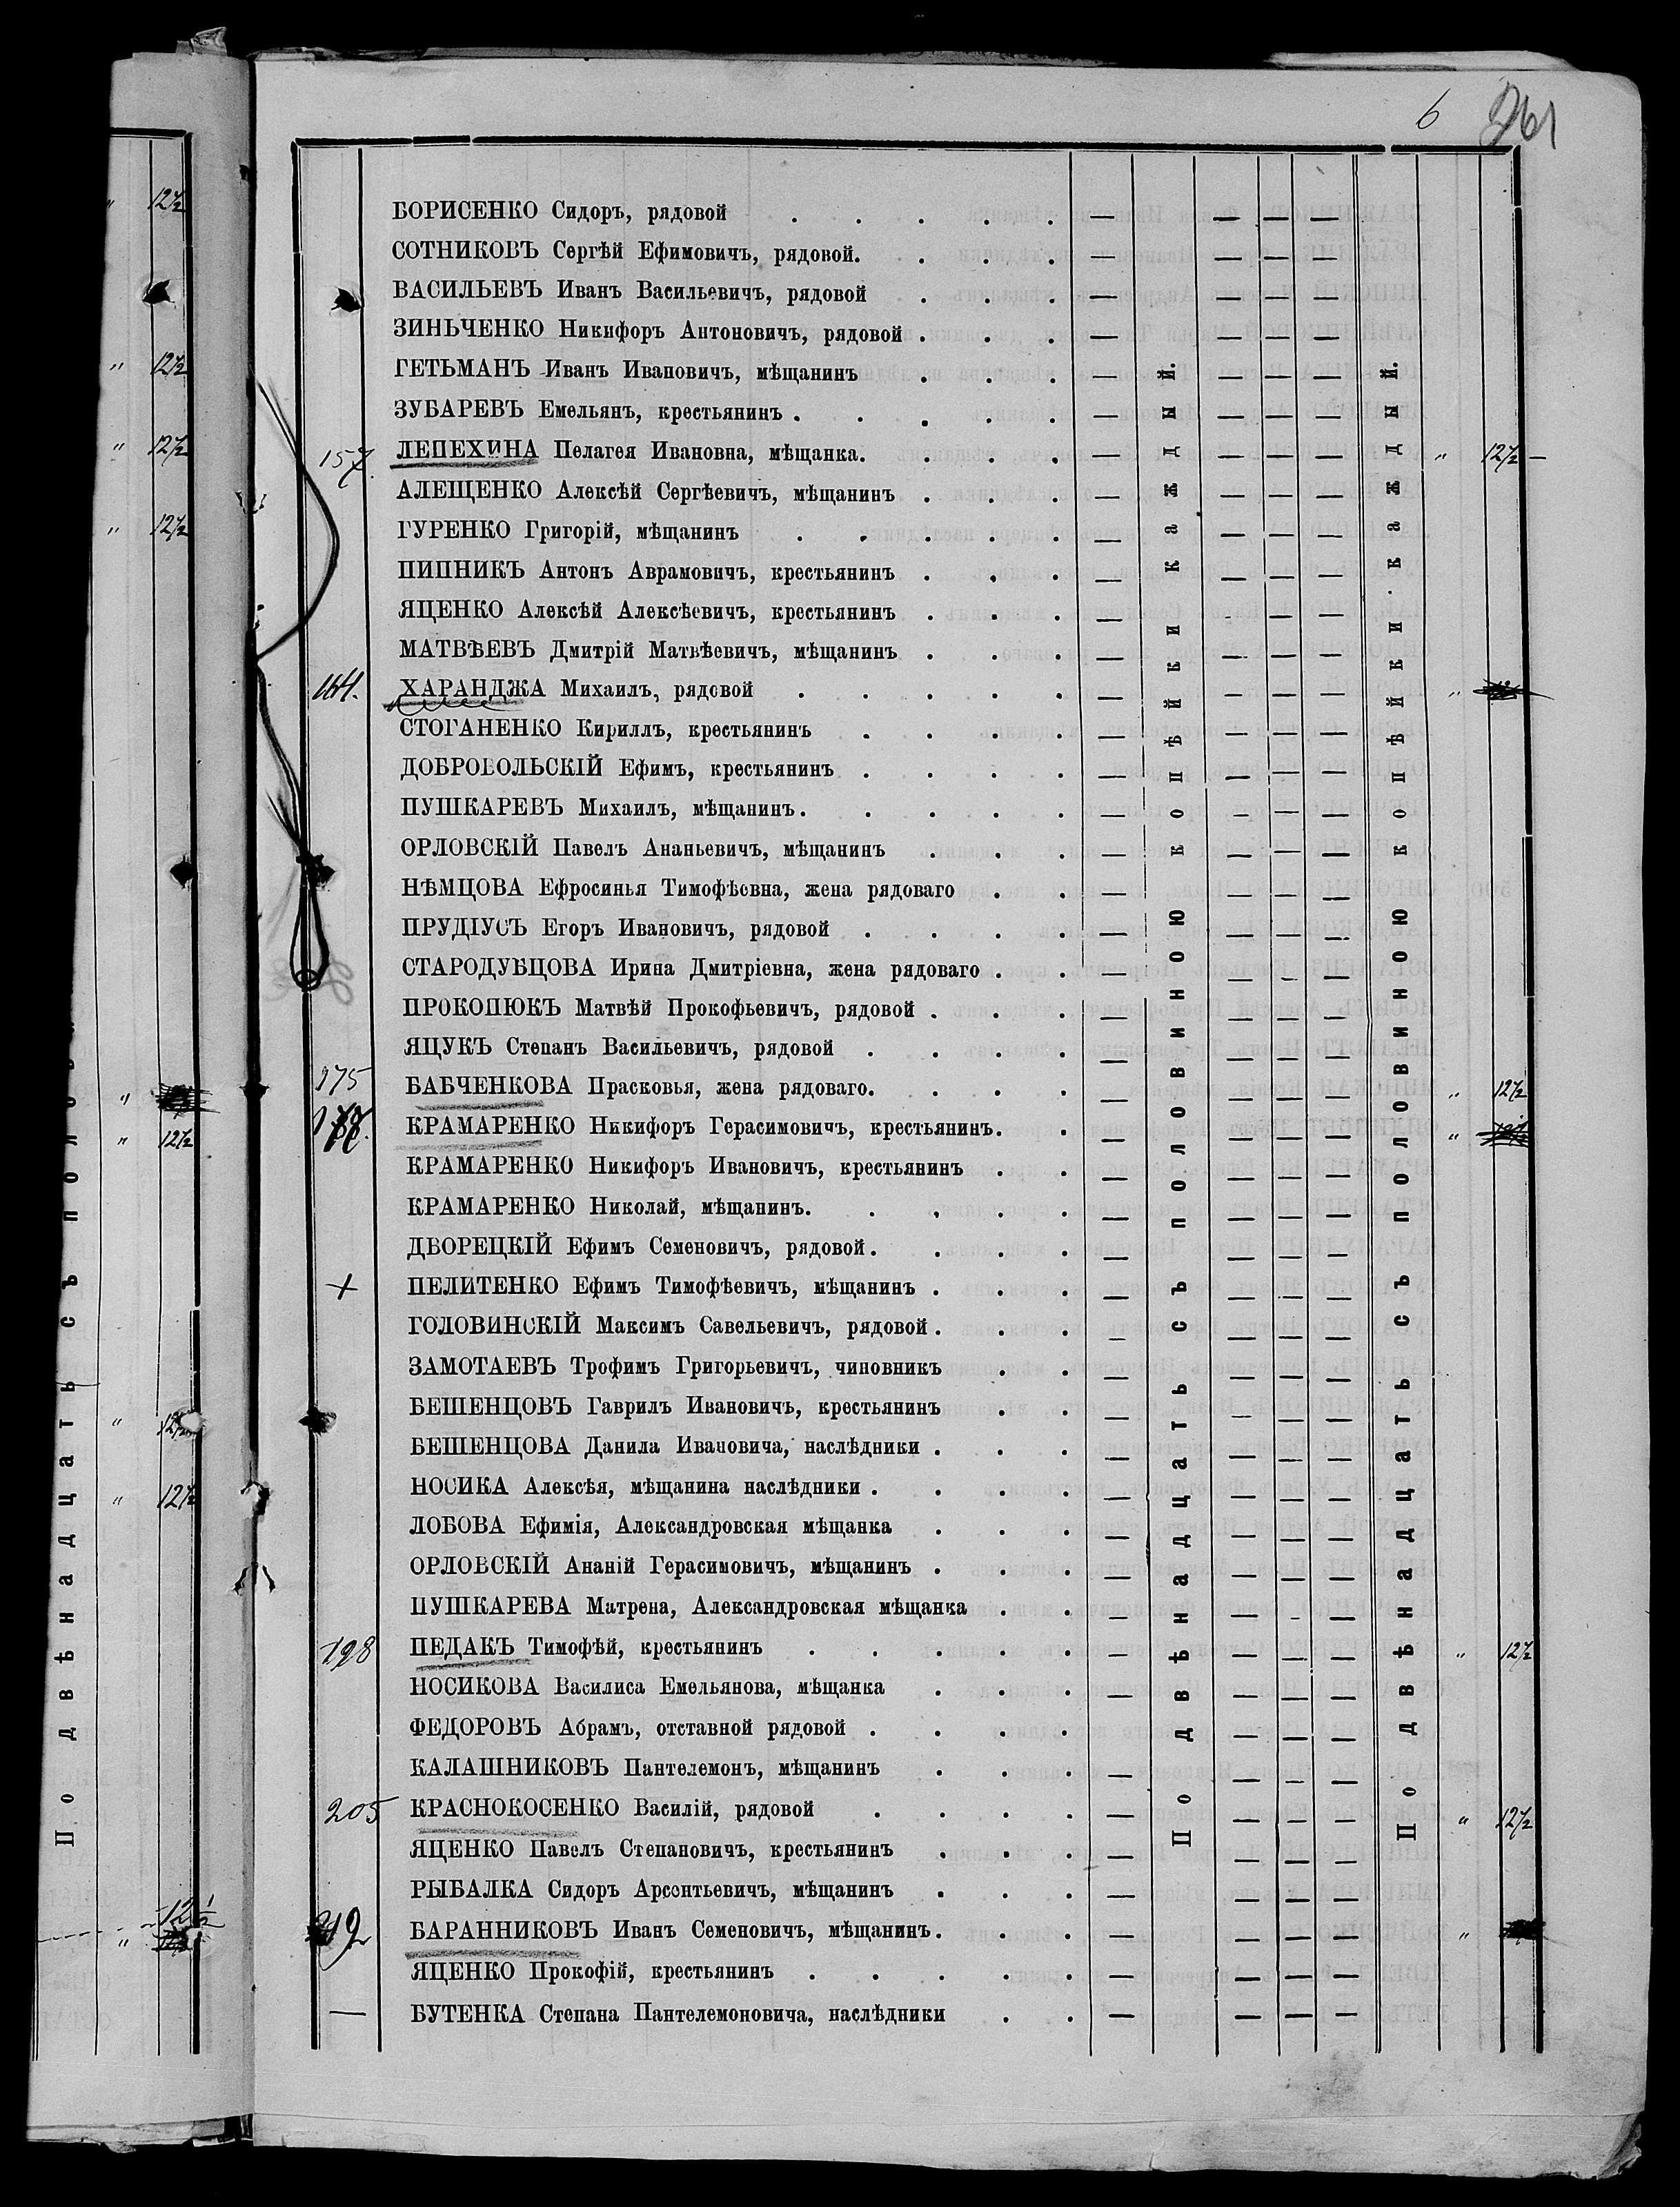 6 261
БОРИСЕНКО Сидоръ, рядовой
СОТНИКОВЪ Сергѣй Ефимовичъ, рядовой.
ВАСИЛЬЕВЪ Иванъ Васильевичъ, рядовой
ЗИНЬЧЕНКО Никифоръ Антоновичъ, рядовой
ГЕТЬМАНЪ Иванъ Ивановичъ, мѣщанинъ
ЗУБАРЕВЪ Емельянъ, крестьянинъ
157. ЛЕПЕХИНА Пелагея Ивановна, мѣщанка. " 12½ —
АЛЕЩЕНКО Алексѣй Сергѣевичъ, мѣщанинъ
ГУРЕНКО Григорій, мѣщанинъ
ПИПНИКЪ Антонъ Аврамовичъ, крестьянинъ
ЯЦЕНКО Алексѣй Алексѣевичъ, крестьянинъ
МАТВѢЕВЪ Дмитрій Матвѣевичъ, мѣщанинъ
ХАРАНДЖА Михаилъ, рядовой "
СТОГАНЕНКО Кириллъ, крестьянинъ
ДОБРОВОЛЬСКІЙ Ефимъ, крестьянинъ
ПУШКАРЕВЪ Михаилъ, мѣщанинъ.
ОРЛОВСКІЙ Павелъ Ананьевичъ, мѣщанинъ
НѢМЦОВА Ефросинья Тимофѣевна, жена рядоваго
ПРУДІУСЪ Егоръ Ивановичъ, рядовой
СТАРОДУБЦОВА Ирина Дмитріевна, жена рядоваго
ПРОКОПЮКЪ Матвѣй Прокофьевичъ, рядовой
ЯЦУКЪ Степанъ Васильевичъ, рядовой
175 БАБЧЕНКОВА Прасковья, жена рядоваго. " 12½
КРАМАРЕНКО Никифоръ Герасимовичъ, крестьянинъ. "
КРАМАРЕНКО Никифоръ Ивановичъ, крестьянинъ
КРАМАРЕНКО Николай, мѣщанинъ.
ДВОРЕЦКІЙ Ефимъ Семеновичъ, рядовой.
+ ПЕЛИТЕНКО Ефимъ Тимофѣевичъ, мѣщанинъ
ГОЛОВИНСКІЙ Максимъ Савельевичъ, рядовой
ЗАМОТАЕВЪ Трофимъ Григорьевичъ, чиновникъ
БЕШЕНЦОВЪ Гаврилъ Ивановичъ, крестьянинъ
БЕШЕНЦОВА Данила Ивановича, наслѣдники
НОСИКА Алексѣя, мѣщанина наслѣдники
ЛОБОВА Ефимія, Александровская мѣщанка
ОРЛОВСКІЙ Ананій Герасимовичъ, мѣщанинъ
ПУШКАРЕВА Матрена, Александровская мѣщанка
198 ПЕДАКЪ Тимофѣй, крестьянинъ " 12½
НОСИКОВА Василиса Емельянова, мѣщанка
ФЕДОРОВЪ Абрамъ, отставной рядовой
КАЛАШНИКОВЪ Пантелемонъ, мѣщанинъ
205 КРАСНОКОСЕНКО Василій, рядовой " 12½
ЯЦЕНКО Павелъ Степановичъ, крестьянинъ
РЫБАЛКА Сидоръ Арсентьевичъ, мѣщанинъ
212 БАРАННИКОВЪ Иванъ Семеновичъ, мѣщанинъ. "
ЯЦЕНКО Прокофій, крестьянинъ
— БУТЕНКА Степана Пантелемоновича, наслѣдники
По двѣнадцать съ половиною копѣйки каждый.
По двѣнадцать съ половиною копѣйки каждый.
По двѣнадцать съ поло
" 12½
" 12½
" 12½
" 12½
" 12½
" 12½
" 12½
12½